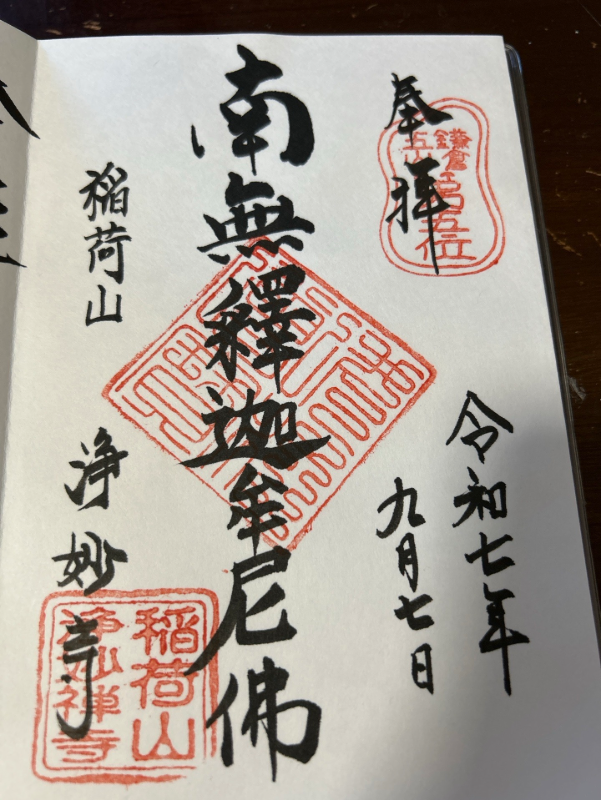 奉拝
鎌倉
五山
第五位
令和七年
九月七日
南無釋迦牟尼佛
稲荷山
浄妙寺
稲荷山
浄妙禅寺